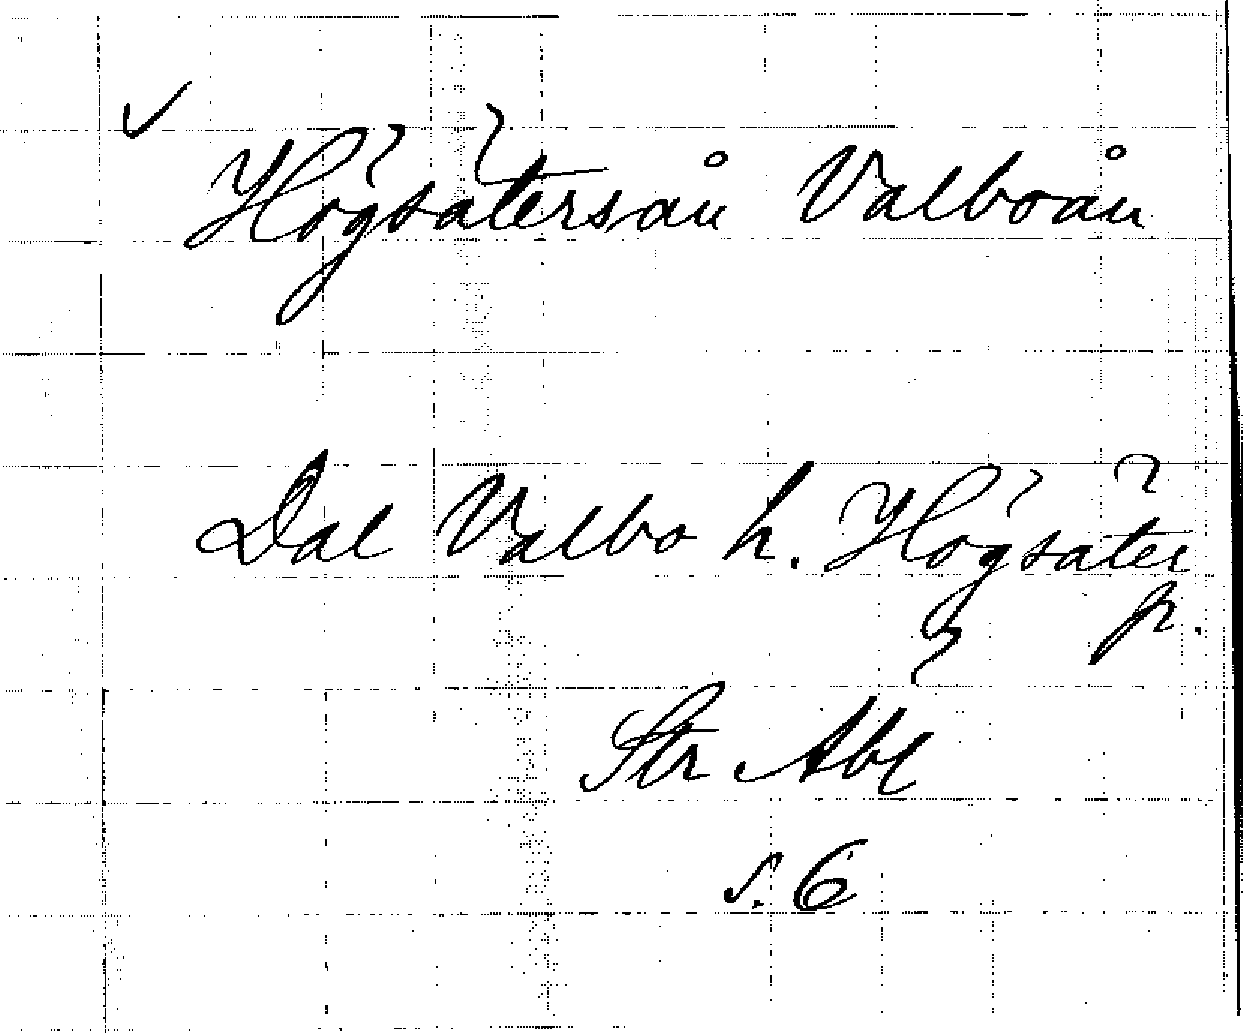 ✓
Högsätersån Valboån
Dal Valbo h. Högsäter
p.
Str Abl
s. 6